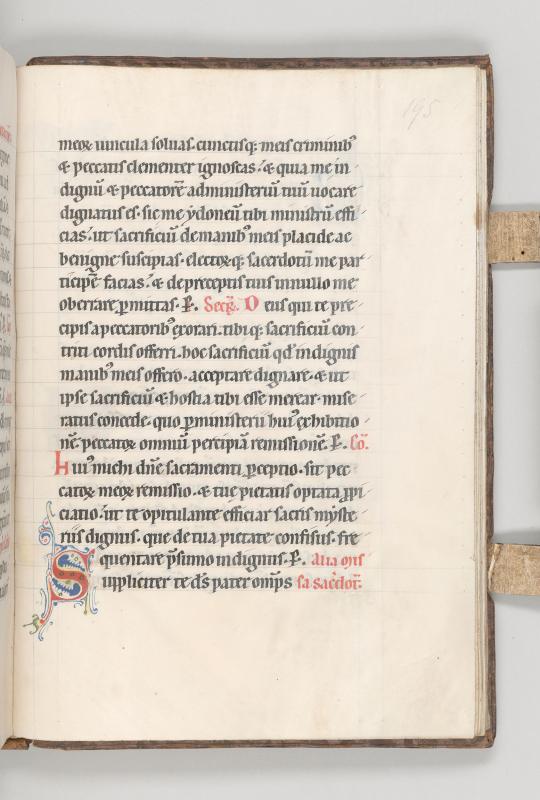 195
meoꝝ uincula soluas. cunctisq; meis criminibꝰ
⁊ peccatis clementer ignoscas. ⁊ quia me in
dignū ⁊ peccatorē ad ministeriū tuū uocare
dignatus es. sic me ydoneū tibi ministrū effi
cias. ut sacrificiū de manibꝰ meis placide ac
benigne suscipias. electorꝫq; sacerdotū me par
ticipē facias. ⁊ de preceptis tuis in nullo me
oberrare ꝑmittas. P̄. Secr̄. Deus qui te pre
cipis a peccatoribꝰ exorari. tibiq; sacrificiū con
triti cordis offerri. hoc sacrificiū qd̄ indignis
manibꝰ meis offero. acceptare dignare. ⁊ ut
ipse sacrificiū ⁊ hostia tibi esse merear. mise
ratus concede. quo ꝑ ministerii huiꝰ exhibitio
nē. peccatoꝝ omniū percipiā remissionē. P̄. Cō.
Huiꝰ michi dn̄e sacramenti ꝑceptio. sit pec
catoꝝ meoꝝ remissio. ⁊ tuę pietatis optata ꝓpi
ciatio. ut te opitulante efficiar sacris myste
riis dignus. que de tua pietate confisus. fre
quentare p̄sumo indignus. P̄. Alia mis
Suppliciter te ds̄ pater omp̄s sa sacerdot.